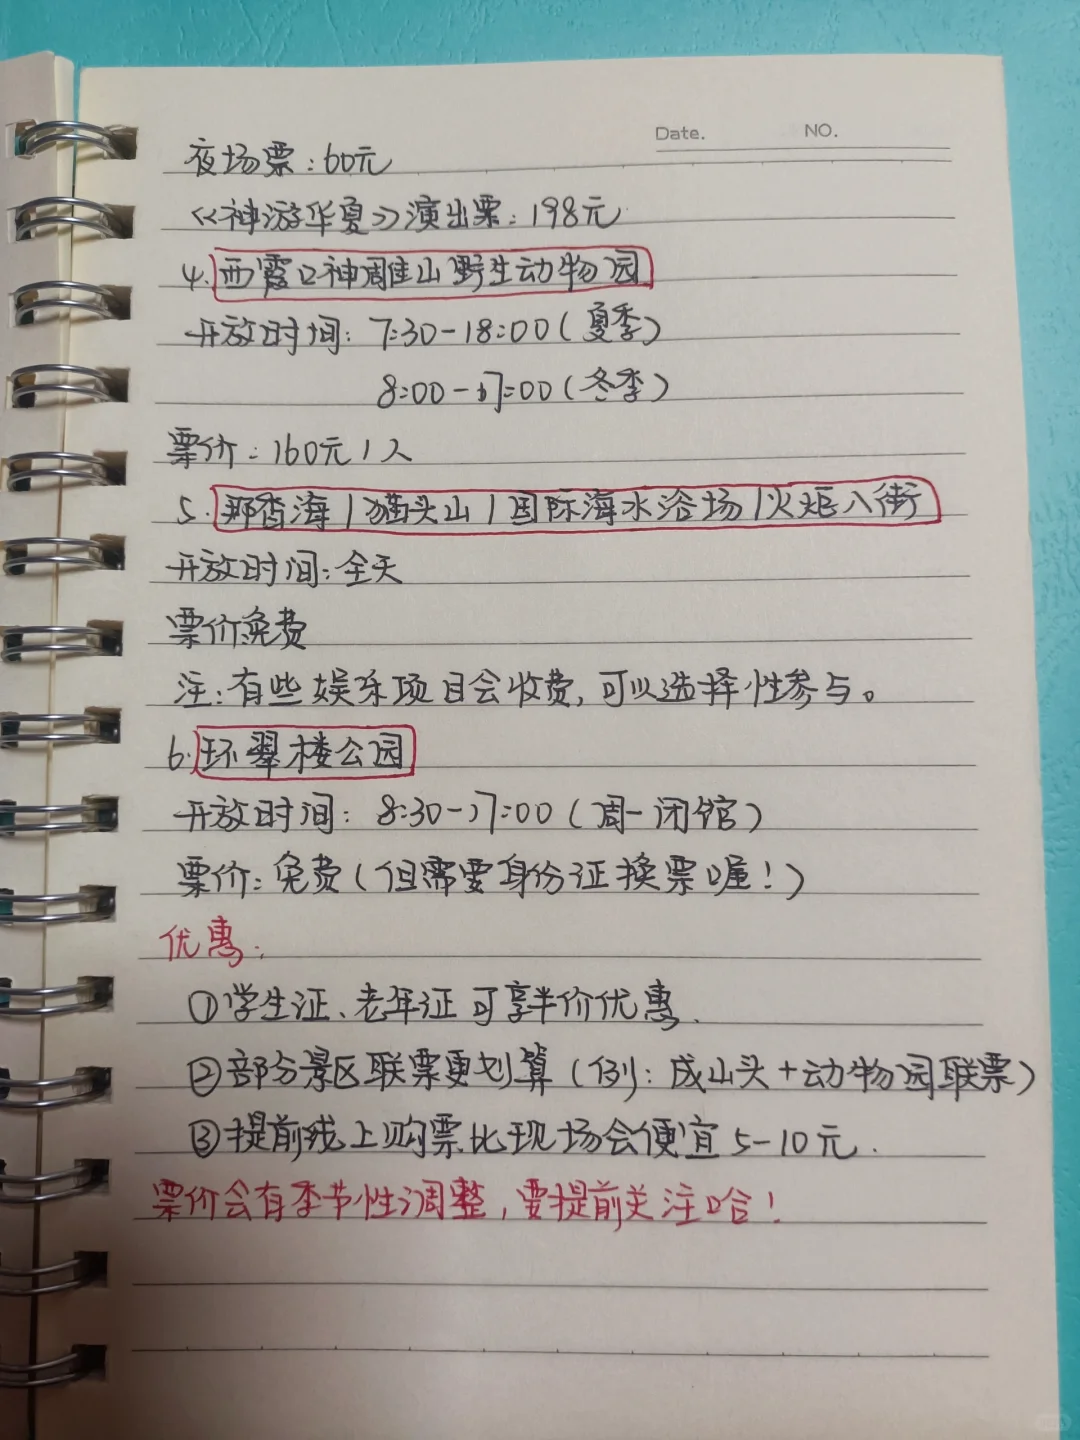 Date. NO.
夜场票:60元
《神游华夏》演出票:198元
4.西霞口神雕山野生动物园
开放时间:7:30-18:00(夏季)
8:00-17:00(冬季)
票价:160元/人
5.那香海/猫头山/国际海水浴场/火炬八街
开放时间:全天
票价免费
注:有些娱乐项目会收费,可以选择性参与。
6.环翠楼公园
开放时间:8:30-17:00(周一闭馆)
票价:免费(但需要身份证换票喔!)
优惠:
①学生证、老年证可享半价优惠.
②部分景区联票更划算(例:成山头+动物园联票)
③提前线上购票比现场会便宜5-10元.
票价会有季节性调整,要提前关注哈!